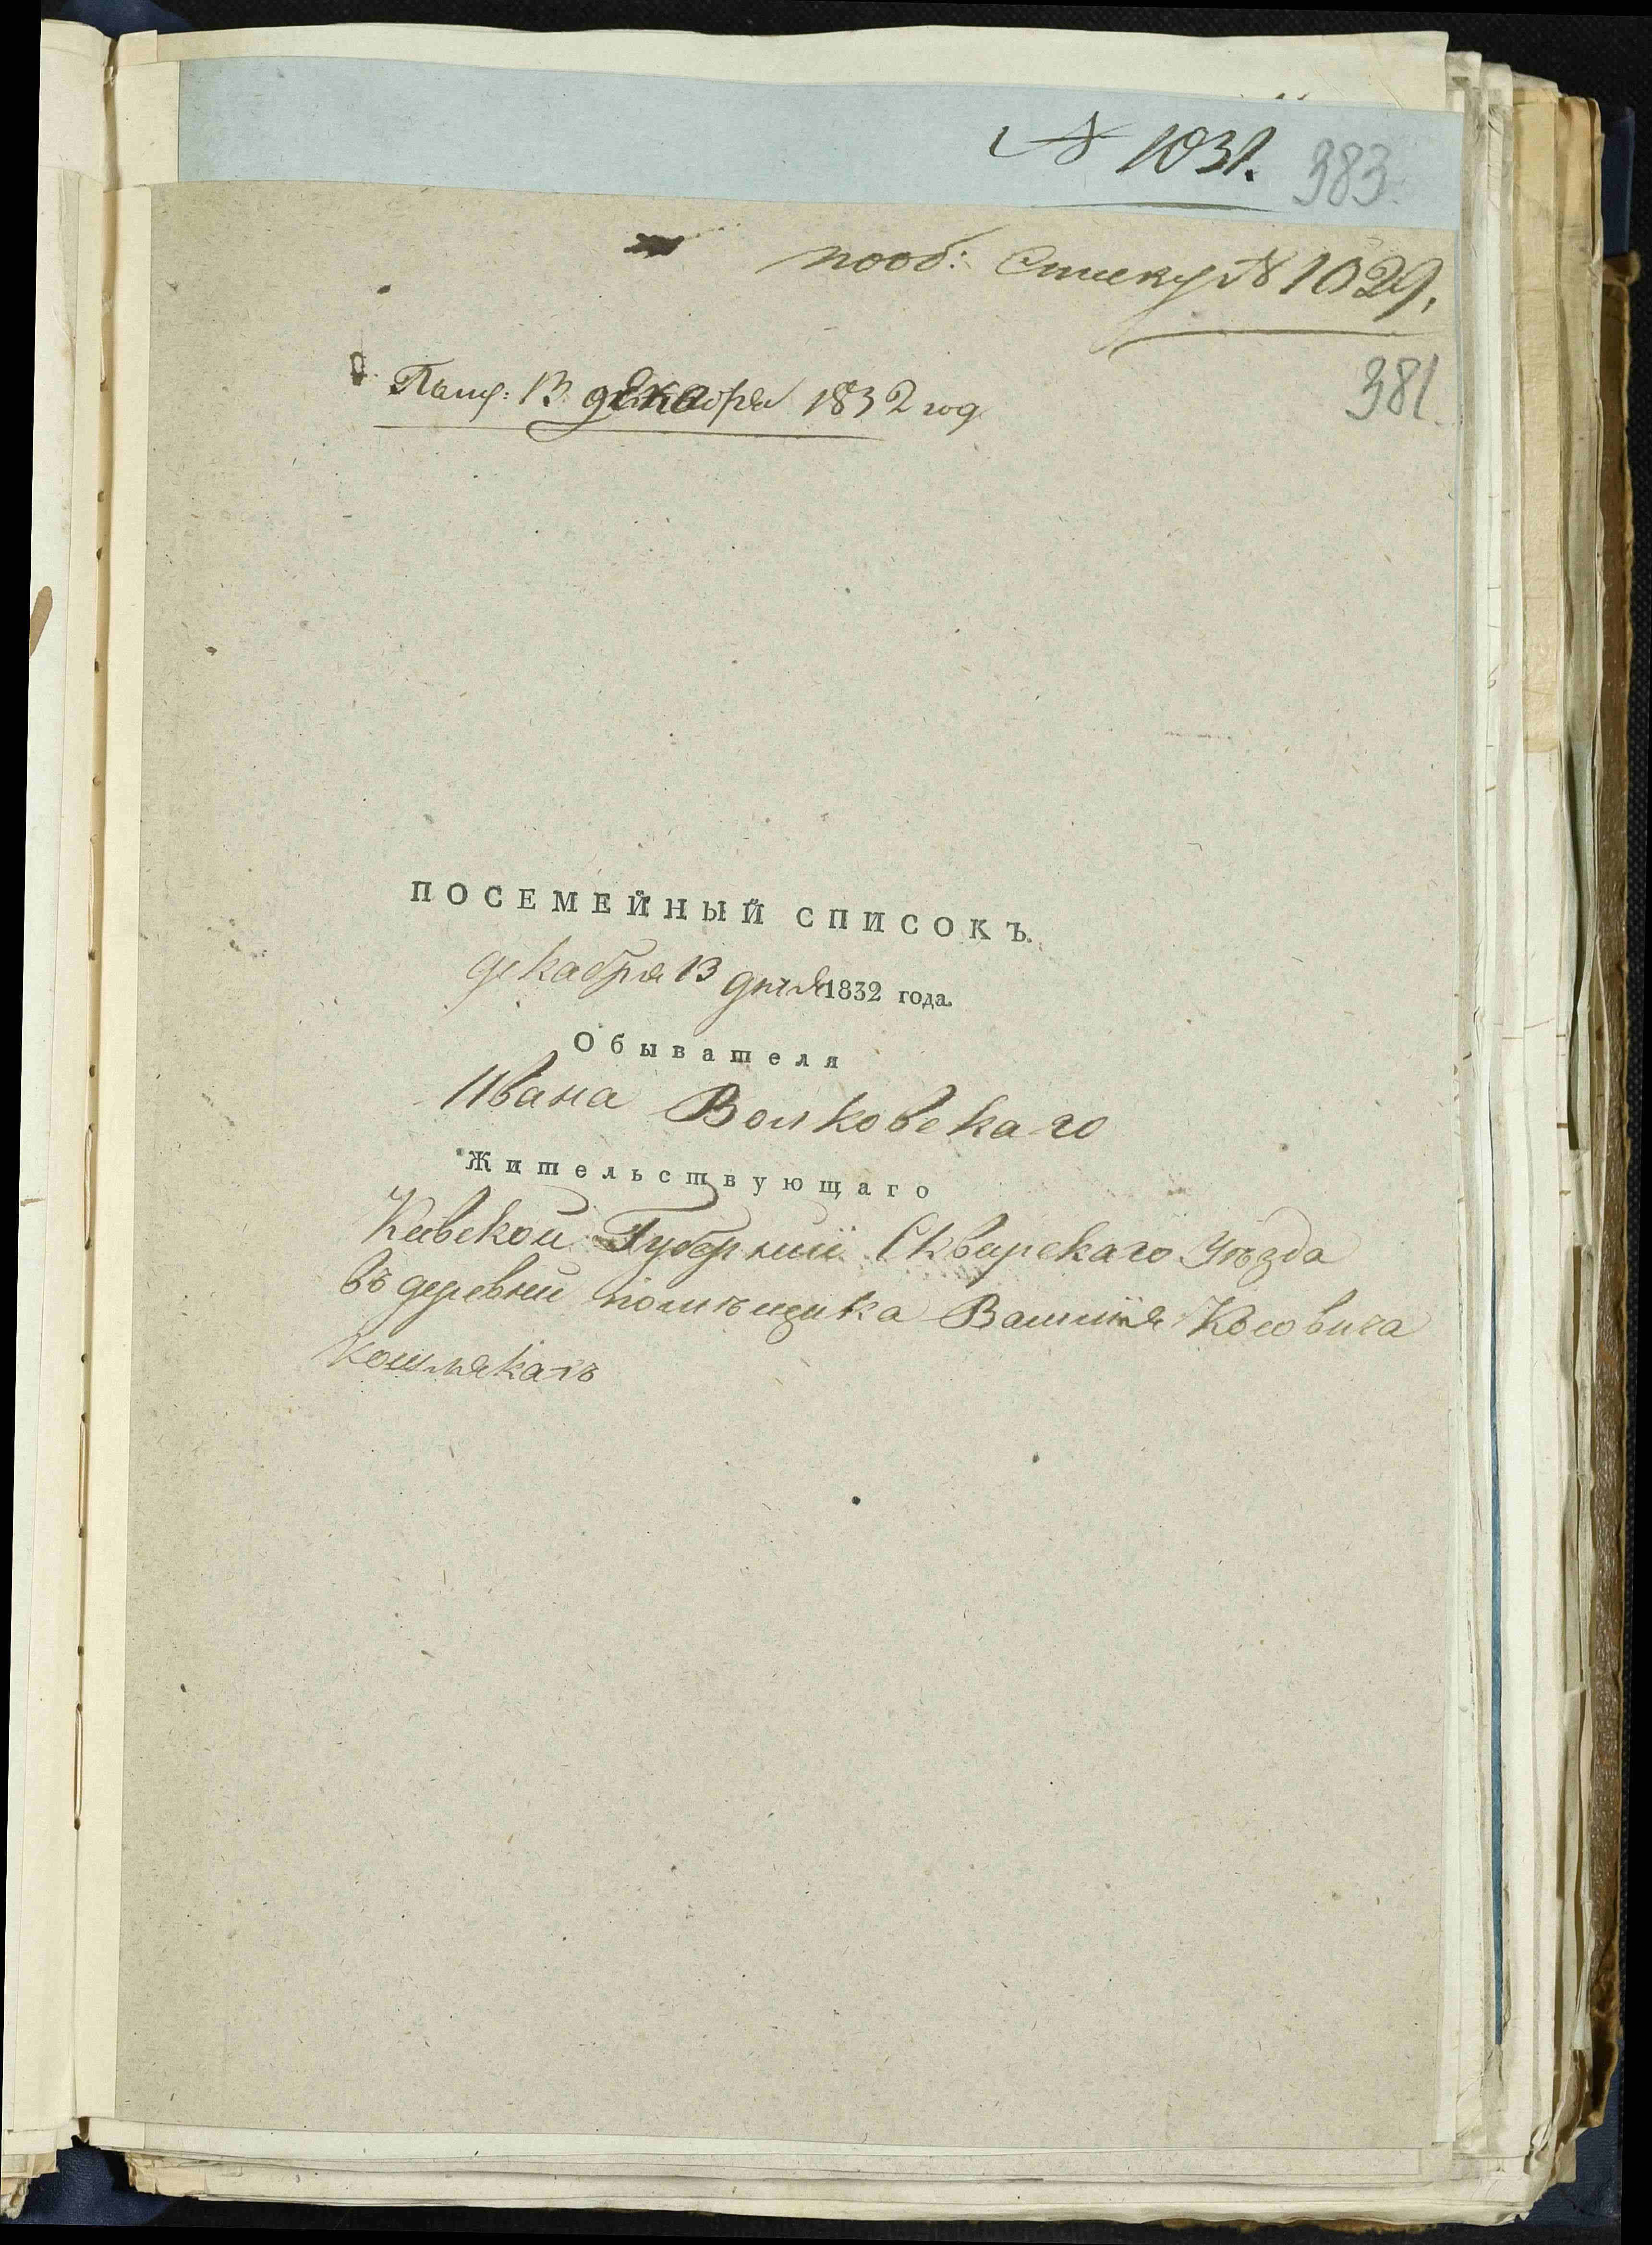 № 1031. 383.
пооб: списку № 1029.
381
Полу: 13 декабря 1832 год
ПОСЕМЕЙНЫЙ СПИСОКЪ.
декабря 13 дня 1832 года.
Обывателя
Ивана Волковскаго
Жительствующаго
Киевской Губернии Сквирскаго уѣзда
въ деревни помѣщика
кошлякахъ